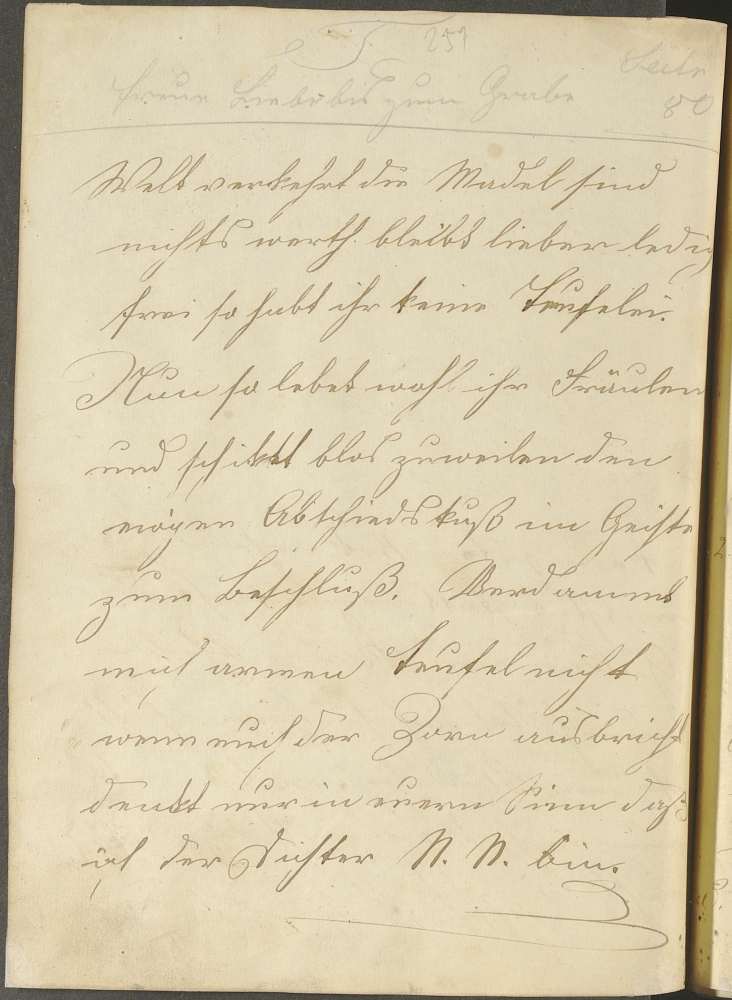 T. 259
Treue Liebe bis zum Grabe Seite 80
Welt verkehrt die Madel sind
nichts werth. bleibt lieber ledig
frei so habt ihr keine Teufelei.
Nun so lebet wohl ihr Fräulen
und schikt blos zuweilen den
Abschiedskuß im Geiste
zum Beschluß. Verdammt
mich armen Teufel nicht
wenn auch der Zorn ausbricht
denkt nur in euern Sinn daß
ich der Dichter N. N. bin.